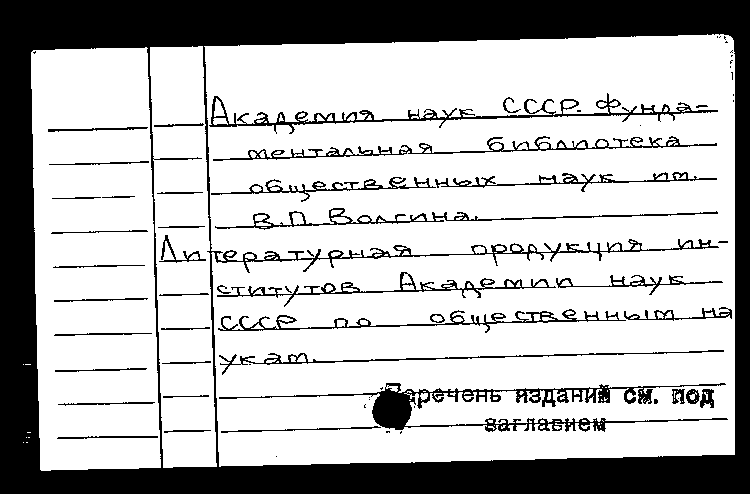 Академия наук СССР. Фунда=
ментальная библиотека
общественных наук им.
В.П. Волгина.
Литературная продукция ин-
ститутов Академии наук
СССР по общественным на
укам.
Перечень изданий см. под
заглавием